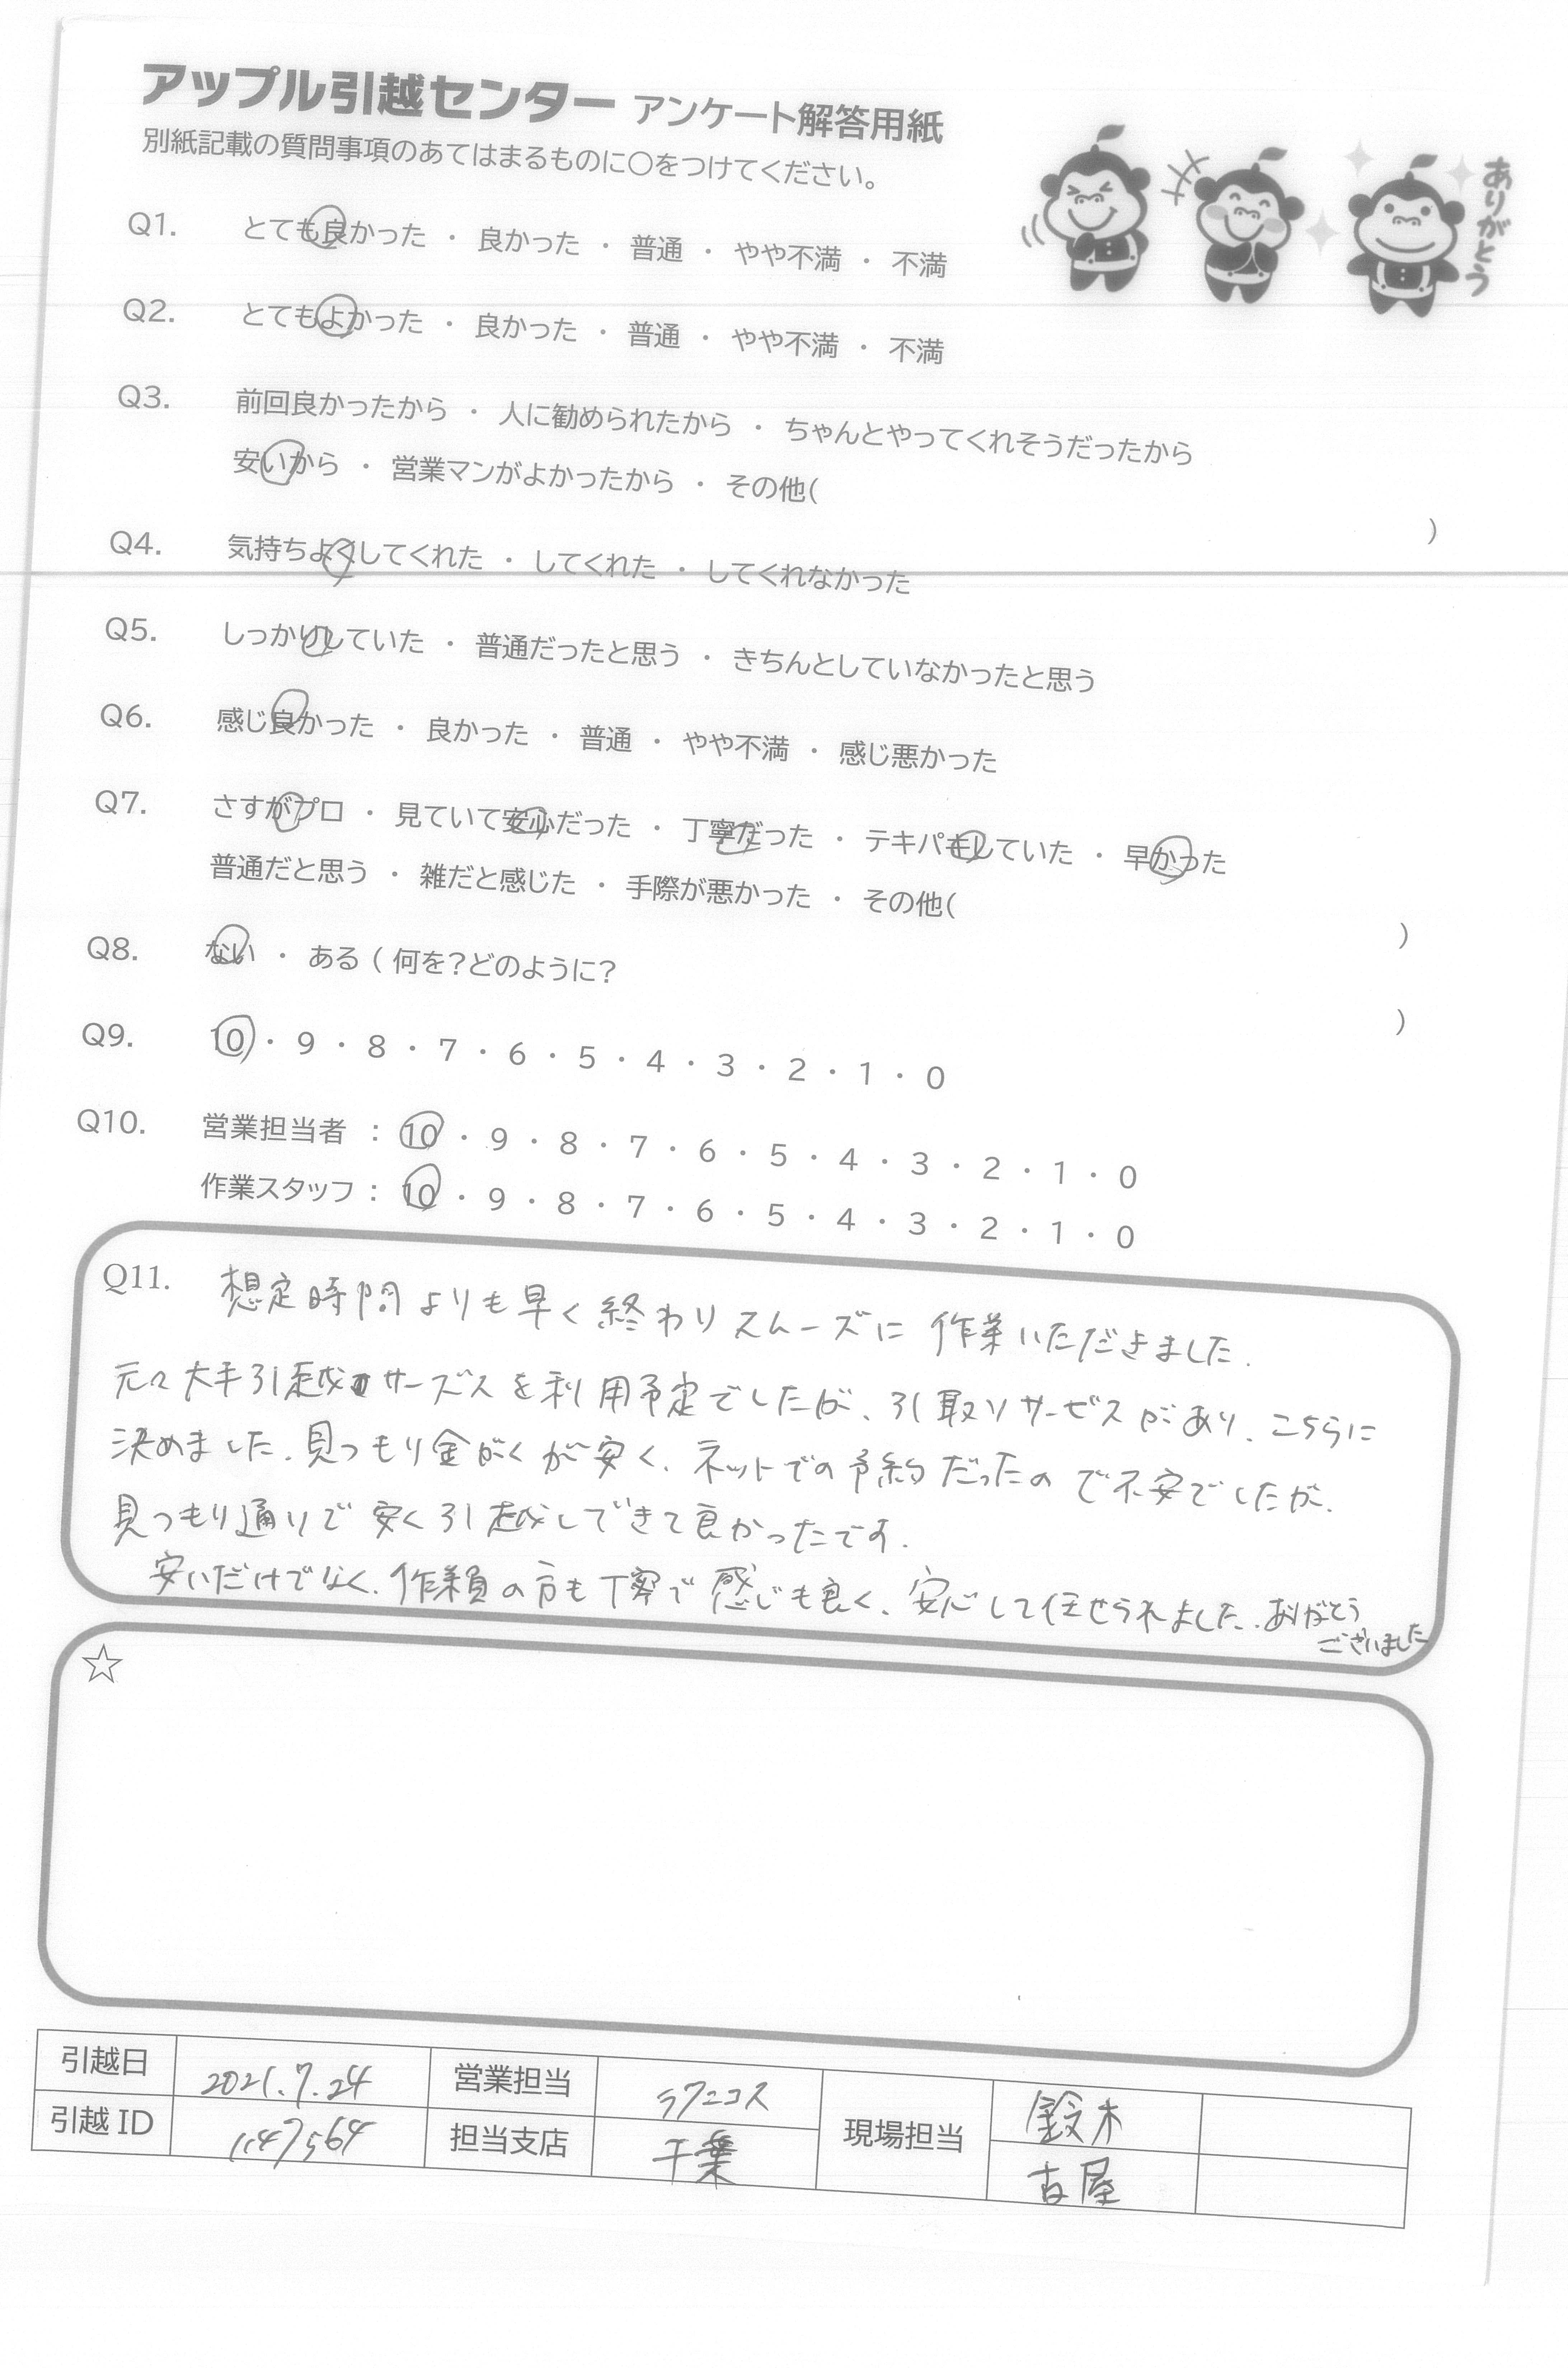 アップル引越センター アンケート解答用紙
別紙記載の質問事項のあてはまるものに〇をつけてください。
ありがとう
Q1. とても良かった ・ 良かった ・ 普通 ・ やや不満 ・ 不満
Q2. とてもよかった ・ 良かった ・ 普通 ・ やや不満 ・ 不満
Q3. 前回良かったから ・ 人に勧められたから ・ ちゃんとやってくれそうだったから
安いから ・ 営業マンがよかったから ・ その他( )
Q4. 気持ちよくしてくれた ・ してくれた ・ してくれなかった
Q5. しっかりしていた ・ 普通だったと思う ・ きちんとしていなかったと思う
Q6. 感じ良かった ・ 良かった ・ 普通 ・ やや不満 ・ 感じ悪かった
Q7. さすがプロ ・ 見ていて安心だった ・ 丁寧だった ・ テキパキしていた ・ 早かった
普通だと思う ・ 雑だと感じた ・ 手際が悪かった ・ その他( )
Q8. ない ・ ある ( 何を?どのように? )
Q9. 10 ・ 9 ・ 8 ・ 7 ・ 6 ・ 5 ・ 4 ・ 3 ・ 2 ・ 1 ・ 0
Q10. 営業担当者 : 10 ・ 9 ・ 8 ・ 7 ・ 6 ・ 5 ・ 4 ・ 3 ・ 2 ・ 1 ・ 0
作業スタッフ : 10 ・ 9 ・ 8 ・ 7 ・ 6 ・ 5 ・ 4 ・ 3 ・ 2 ・ 1 ・ 0
Q11. 想定時間よりも早く終わりスムーズに作業いただきました.
元々大手引越サービスを利用予定でしたが、引取りサービスがあり、こちらに
決めました.見つもり金がくが安く、ネットでの予約だったので不安でしたが、
見つもり通りで安く引越しできて良かったです.
安いだけでなく、作業員の方も丁寧で感じも良く、安心して任せられました.ありがとう
ございました
☆
引越日 2021.7.24 営業担当 ラクニコス 現場担当 鈴木
引越 ID 1147564 担当支店 千葉 古屋